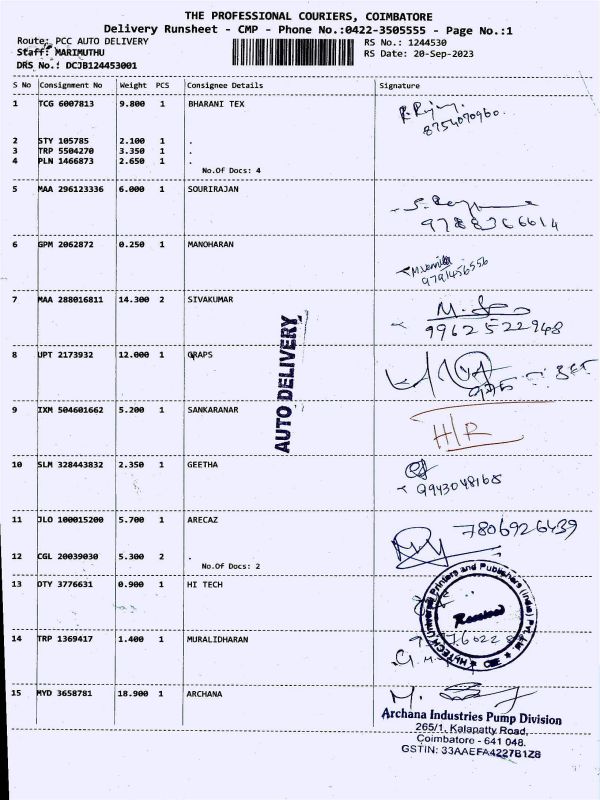 THE PROFESSIONAL COURIERS, COIMBATORE
Delivery Runsheet - CMP - Phone No.:0422-3505555 - Page No.:1
Route: PCC AUTO DELIVERY RS No.: 1244530
Staff: MARIMUTHU RS Date: 20-Sep-2023
DRS No.: DCJB124453001
S No Consignment No Weight PCS Consignee Details Signature
1 TCG 6007813 9.800 1 BHARANI TEX
8754070960.
2 STY 105785 2.100 1 .
3 TRP 5504270 3.350 1 .
4 PLN 1466873 2.650 1 .
No.Of Docs: 4
5 MAA 296123336 6.000 1 SOURIRAJAN
9788366614
6 GPM 2062872 0.250 1 MANOHARAN
9791456556
7 MAA 288016811 14.300 2 SIVAKUMAR
9962522948
AUTO DELIVERY
8 UPT 2173932 12.000 1 GRAPS
9 IXM 504601662 5.200 1 SANKARANAR
H/R
10 SLM 328443832 2.350 1 GEETHA
9943048168
11 JLO 100015200 5.700 1 ARECAZ
7806926439
12 CGL 20039030 5.300 2 .
No.Of Docs: 2
13 DTY 3776631 0.900 1 HI TECH
HITECH Universal Printers and Publishers (India) Pvt. Ltd.
Received
CBE
14 TRP 1369417 1.400 1 MURALIDHARAN
15 MYD 3658781 18.900 1 ARCHANA
Archana Industries Pump Division
265/1, Kalapatty Road,
Coimbatore - 641 048.
GSTIN: 33AAEFA4227B1Z8